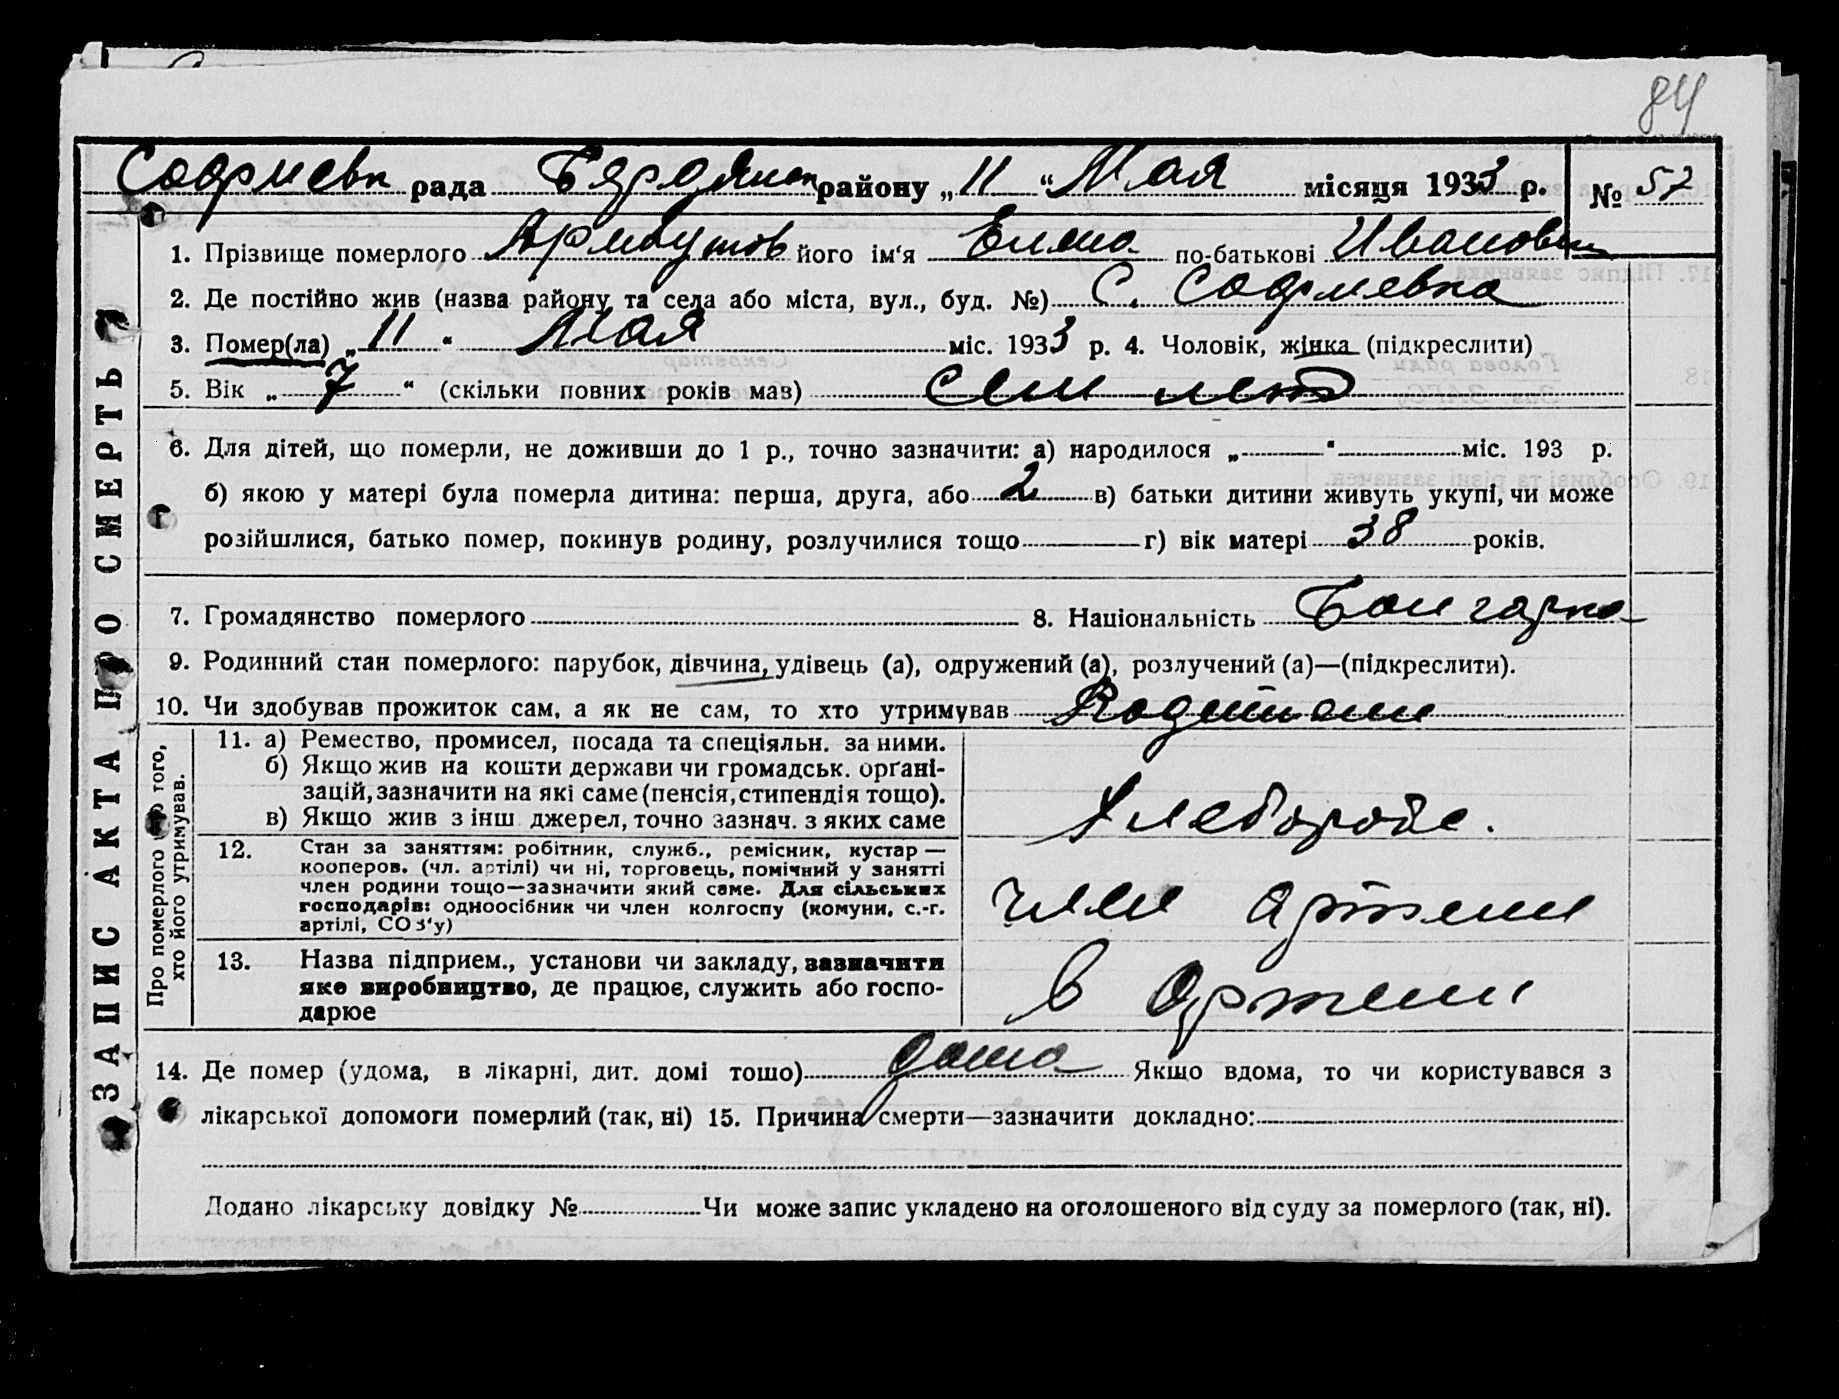 84
Софиевк рада Бердянск району „ 11 “ Мая місяця 1933 р. № 57
1. Прізвище померлого Армаутов його ім‘я Елена по-батькові Ивановн
2. Де постійно жив (назва району та села або міста, вул., буд. №) С. Софиевка
3. Помер(ла) „ 11 “ Мая міс. 1933 р. 4. Чоловік, жінка (підкреслити)
5. Вік „ 7 “ (скільки повних років мав) семь лет
6. Для дітей, що померли, не доживши до 1 р., точно зазначити: а) народилося „ “ міс. 193 р.
б) якою у матері була померла дитина: перша, друга, або 2 в) батьки дитини живуть укупі, чи може
розійшлися, батько помер, покинув родину, розлучилися тощо г) вік матері 38 років.
7. Громадянство померлого 8. Національність Болгарка
9. Родинний стан померлого: парубок, дівчина, удівець (а), одружений (а), розлучений (а)—(підкреслити).
10. Чи здобував прожиток сам, а як не сам, то хто утримував Родители
11. а) Ремество, промисел, посада та спеціяльн. за ними.
б) Якщо жив на кошти держави чи громадськ. орґані-
зацій, зазначити на які саме (пенсія, стипендія тощо).
в) Якщо жив з інш джерел, точно зазнач. з яких саме
Хлебороб.
12. Стан за заняттям: робітник, служб., ремісник, кустар —
кооперов. (чл. артілі) чи ні, торговець, помічний у занятті
член родини тощо—зазначити який саме. Для сільських
господарів: одноосібник чи член колгоспу (комуни, с.-г.
артілі, СОЗ‘у)
член артели
13. Назва підприєм., установи чи закладу, зазначити
яке виробництво, де працює, служить або госпо-
дарює
в Артели
14. Де помер (удома, в лікарні, дит. домі тощо) дома Якщо вдома, то чи користувався з
лікарської допомоги померлий (так, ні) 15. Причина смерти—зазначити докладно:
Додано лікарську довідку № Чи може запис укладено на оголошеного від суду за померлого (так, ні).
ЗАПИС АКТА ПРО СМЕРТЬ
Про померлого того,
хто його утримував.